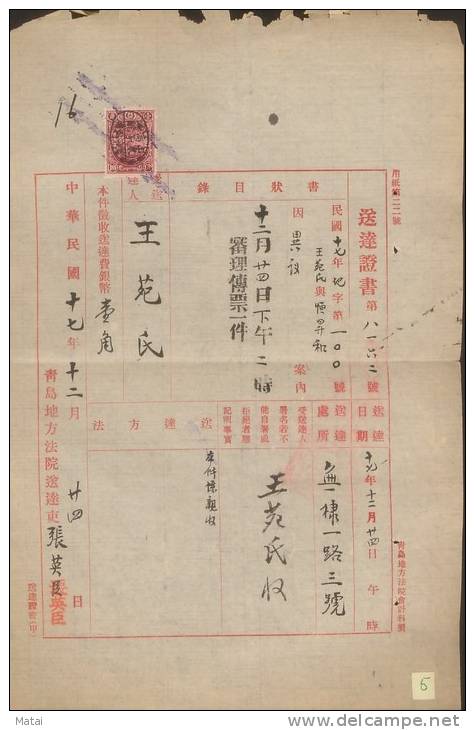 用紙第二二號
送達證書 第八一六二號
民國十七年 字第一〇〇號
王苑氏與恒昇和
因異議 案內
書狀目錄
十二月廿四日下午二時
審理傳票一件
送達人
王苑氏
本件徵收送達費銀幣壹角
送達日期
十七年十二月廿四日 午 時
送達處所
無棣一路三號
受送達人署名若不能自署或拒絕者應記明事實
王苑氏收
送達方法
本件係親收
中華民國十七年十二月廿四日
青島地方法院送達吏張英臣
張英臣
青島地方法院會計科製
送達證書(甲)
16
5
Matai
delcampe.net